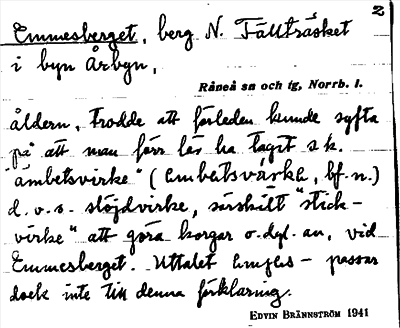 2
Emmesberget, berg N. Tällträsket
i byn Årbyn,
Råneå sn och tg, Norrb. l.
åldern, trodde att förleden kunde syfta
på att man förr lär ha tagit s.k.
"ämbetsvirke" (embetsvärke, bf. n.)
d.v.s. slöjdvirke, särskilt "stick-
virke" att göra korgar o.dyl. av, vid
Emmesberget. Uttalet – passar
dock inte till denna förklaring.
EDVIN BRÄNNSTRÖM 1941